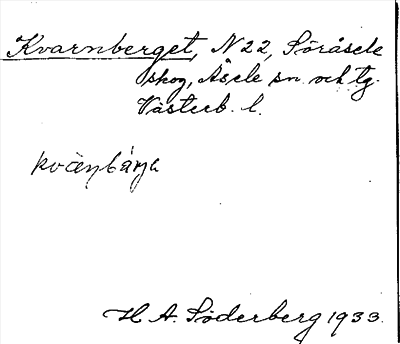 Kvarnberget, N 22, Söråsele
skog, Åsele sn. och tg.
Västerb. l.
H. A. Söderberg 1933.